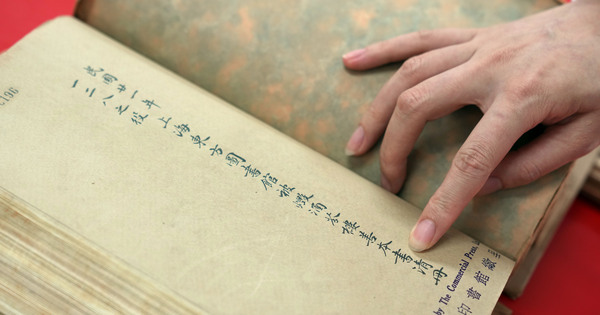 民國廿一年
一二八之役
上海東方圖書館被燬涵芬樓善本書清冊
by The Commercial Press,
印書館藏